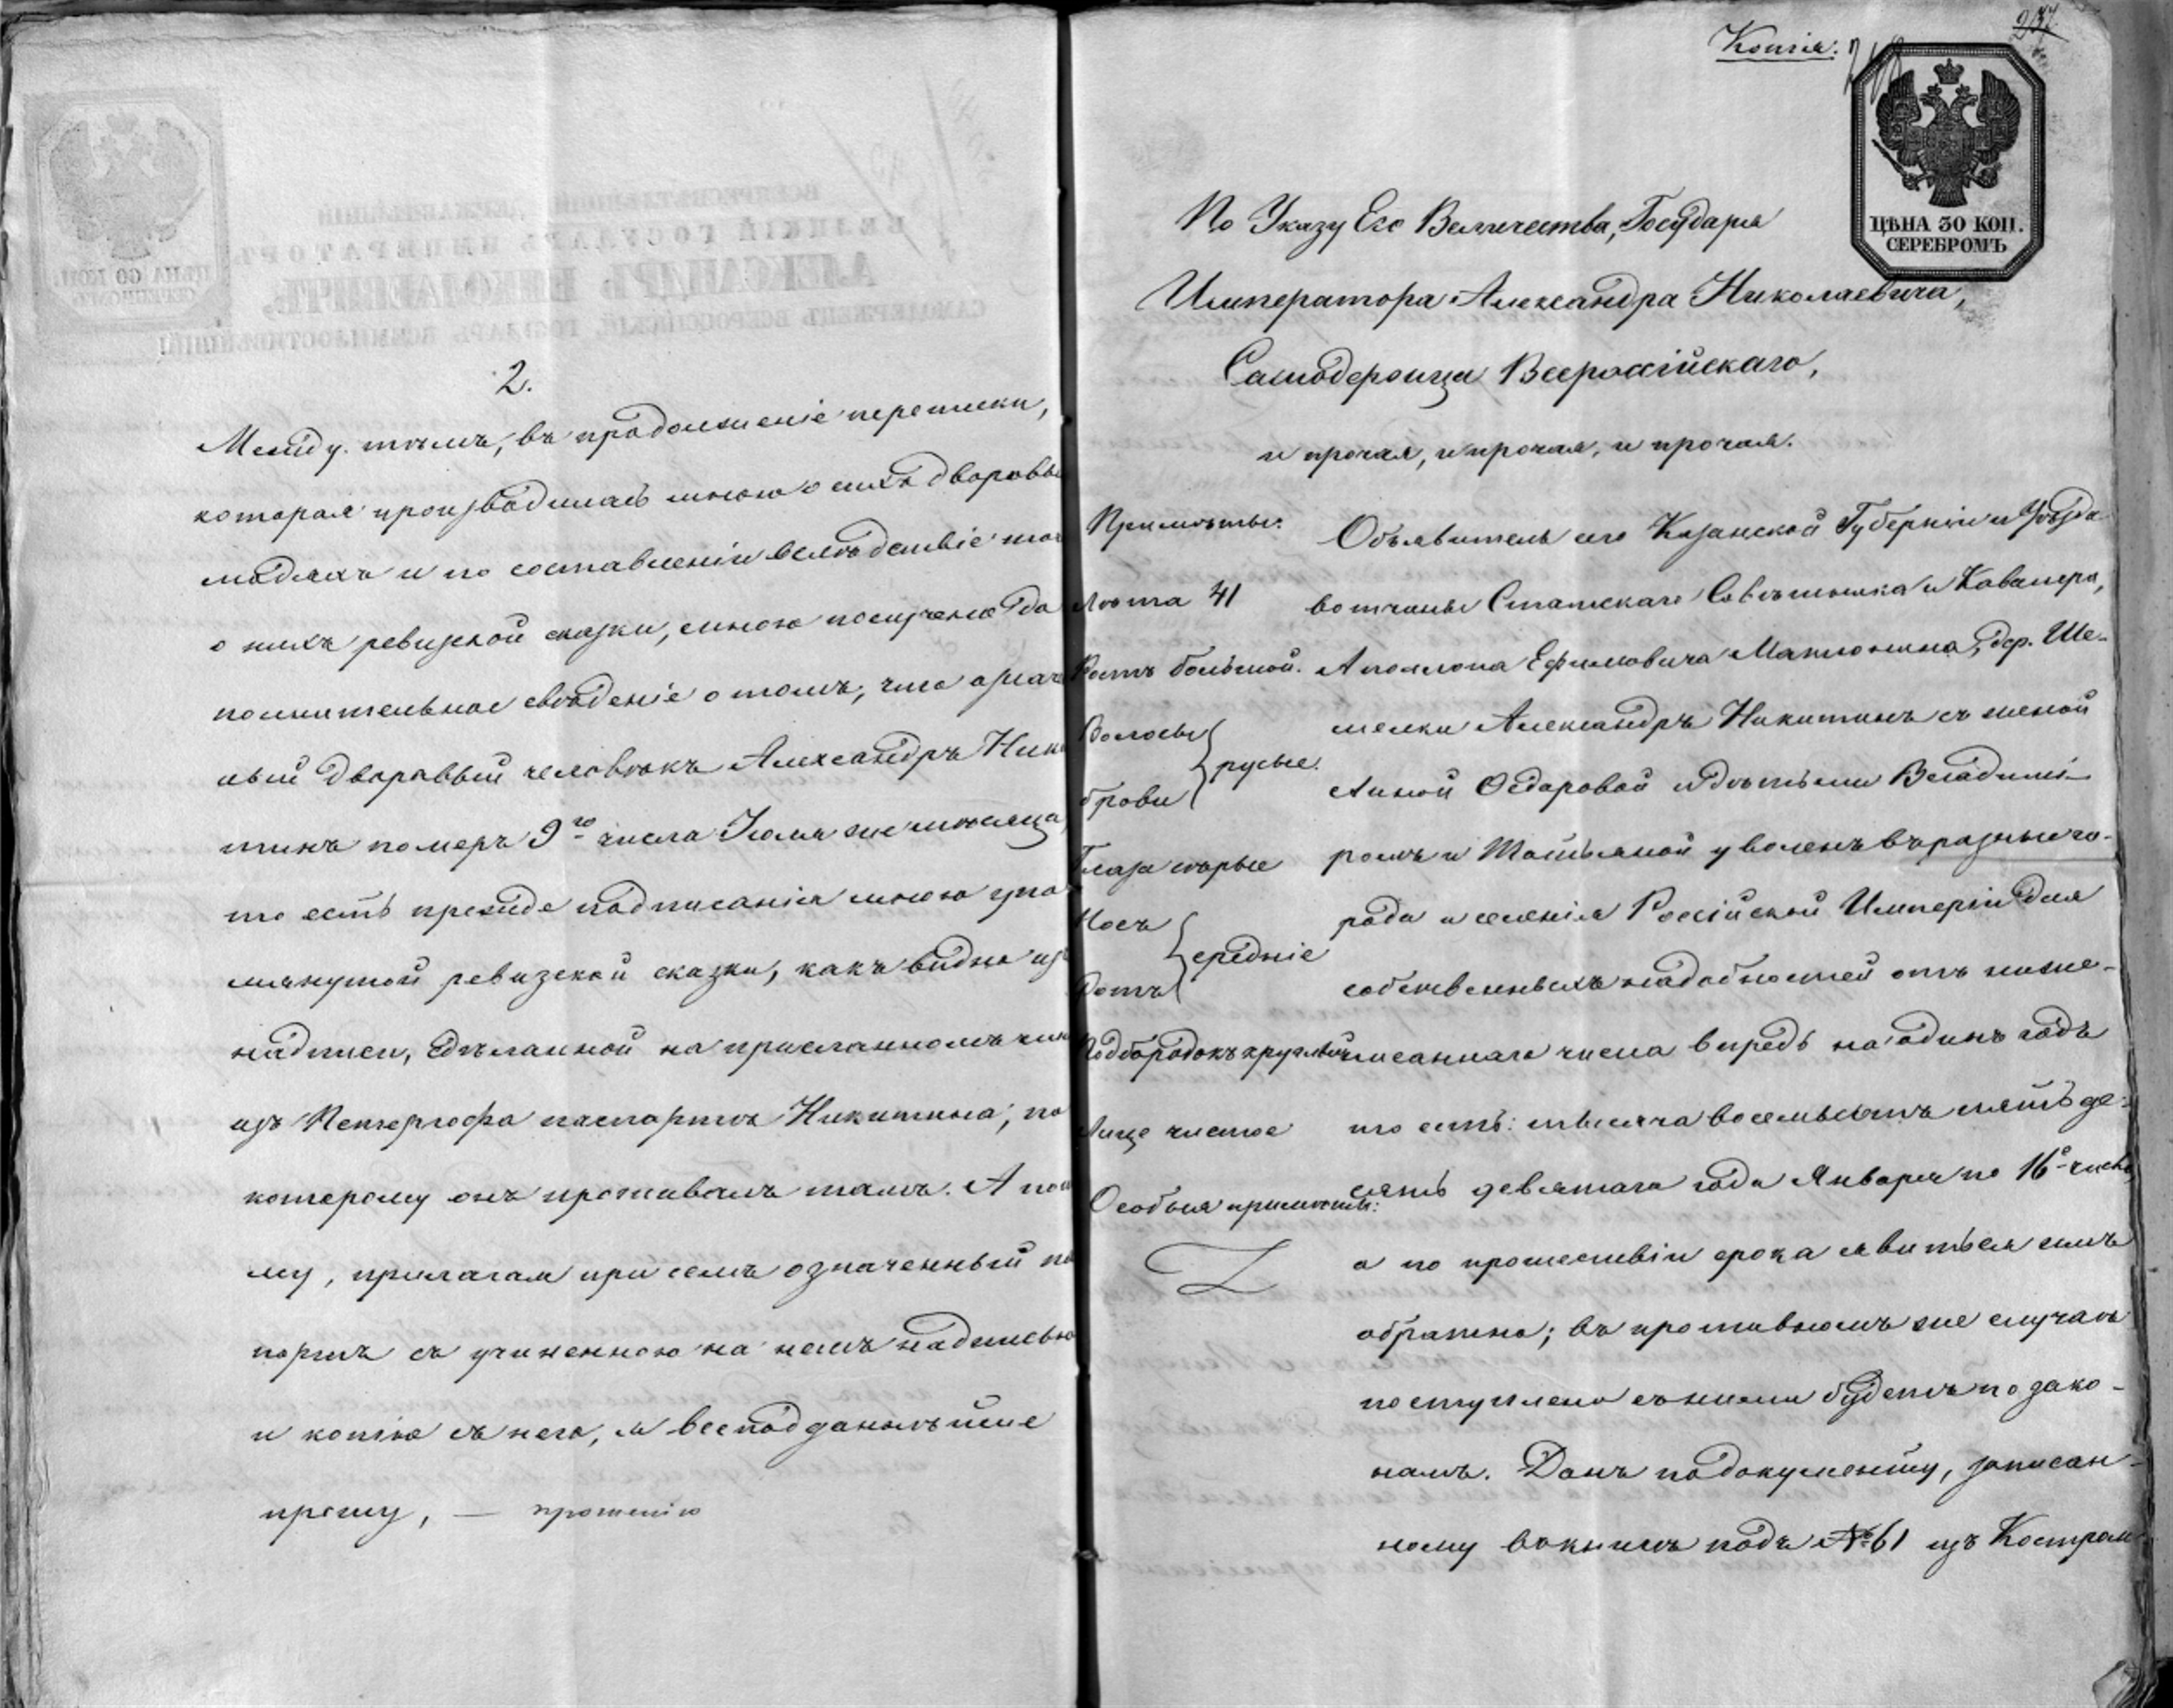 2.
Между тѣмъ, въ продолженіе переписки,
которая производилась мною о сихъ дворовы
людяхъ и по составленіи вслѣдствіе того
о нихъ ревизской сказки, мною получено до
полнительное свѣденіе о томъ, что
ный дворовый человѣкъ Александръ Ники
тинъ померъ 9го числа Іюля же мѣсяца,
то есть прежде подписанія мною упо
мянутой ревизской сказки, какъ видно изъ
надписи, сдѣланной на присланномъ
изъ Петергофа паспортѣ Никитина, по
которому онъ проживалъ тамъ. А пото
му, прилагая при семъ означенный пас
портъ съ учиненною на немъ надписью
и копію съ него, я всеподданнѣйше
прошу, — прошенію
Копія.
237
ЦѢНА 30 КОП.
СЕРЕБРОМЪ
По Указу Его Величества, Государя
Императора Александра Николаевича,
Самодержца Всероссійскаго,
и прочая, и прочая, и прочая.
Примѣты:
Лѣта 41
Ростъ большой.
Волосы
брови
русые.
Глаза сѣрые
Носъ
Ротъ
средніе
Подбородокъ круглый
Лице чистое
Особыя примѣты:
Объявитель сего Казанской Губерніи и Уѣзда
вотчины Статскаго Совѣтника и Кавалера,
Аполлона Ефимовича Матюнина, дер. Ше-
мелки Александръ Никитинъ съ женой
Анной Ѳедоровой и дѣтьми Владимі-
ромъ и Татьяной уволенъ въ разные го-
рода и селенія Россійской Имперіи для
собственныхъ надобностей отъ ниже-
писаннаго числа впредь на одинъ годъ
то есть: тысяча восемьсотъ пятьде-
сятъ девятаго года Января по 16е число,
а по прошествіи срока явиться емъ
обратно; въ противномъ же случаѣ
поступлено съ ними будетъ по зако-
намъ. Данъ по документу, записан-
ному въ книгѣ подъ № 61 изъ Костром